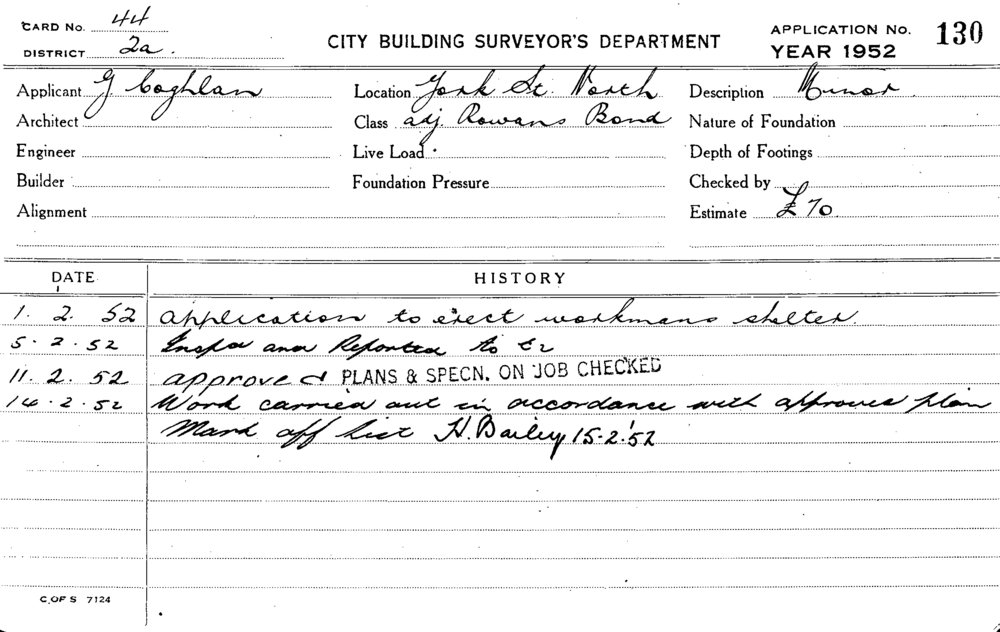 CARD No. 44
DISTRICT 2a.
CITY BUILDING SURVEYOR'S DEPARTMENT
APPLICATION No. 130
YEAR 1952
Applicant G. Coghlan
Location York St. North
Description Minor
Architect
Class adj. Rowans Bond
Nature of Foundation
Engineer
Live Load
Depth of Footings
Builder
Foundation Pressure
Checked by
Alignment
Estimate £70
DATE HISTORY
1. 2. 52 application to erect workmans shelter.
5. 2. 52 Inspd and Reported to
11. 2. 52 approved PLANS & SPECN. ON JOB CHECKED
14. 2. 52 Work carried out in accordance with approved plan
Mark off list H. Bailey 15.2.52
C. OF S 7124